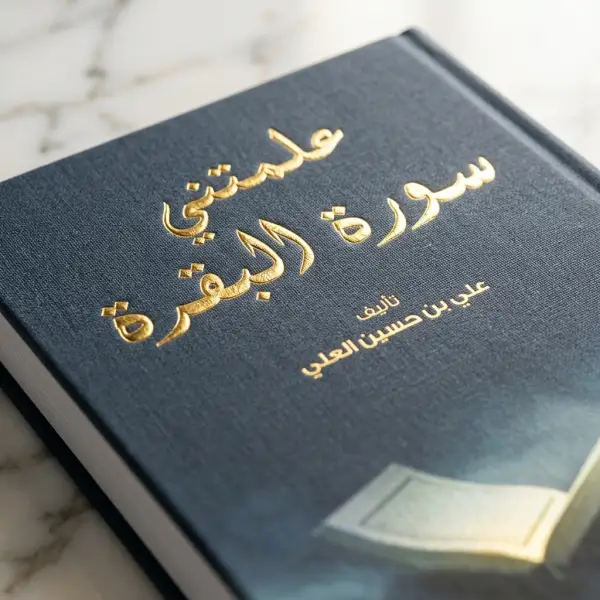 علمتني
سورة البقرة
تأليف
علي بن حسين العلي